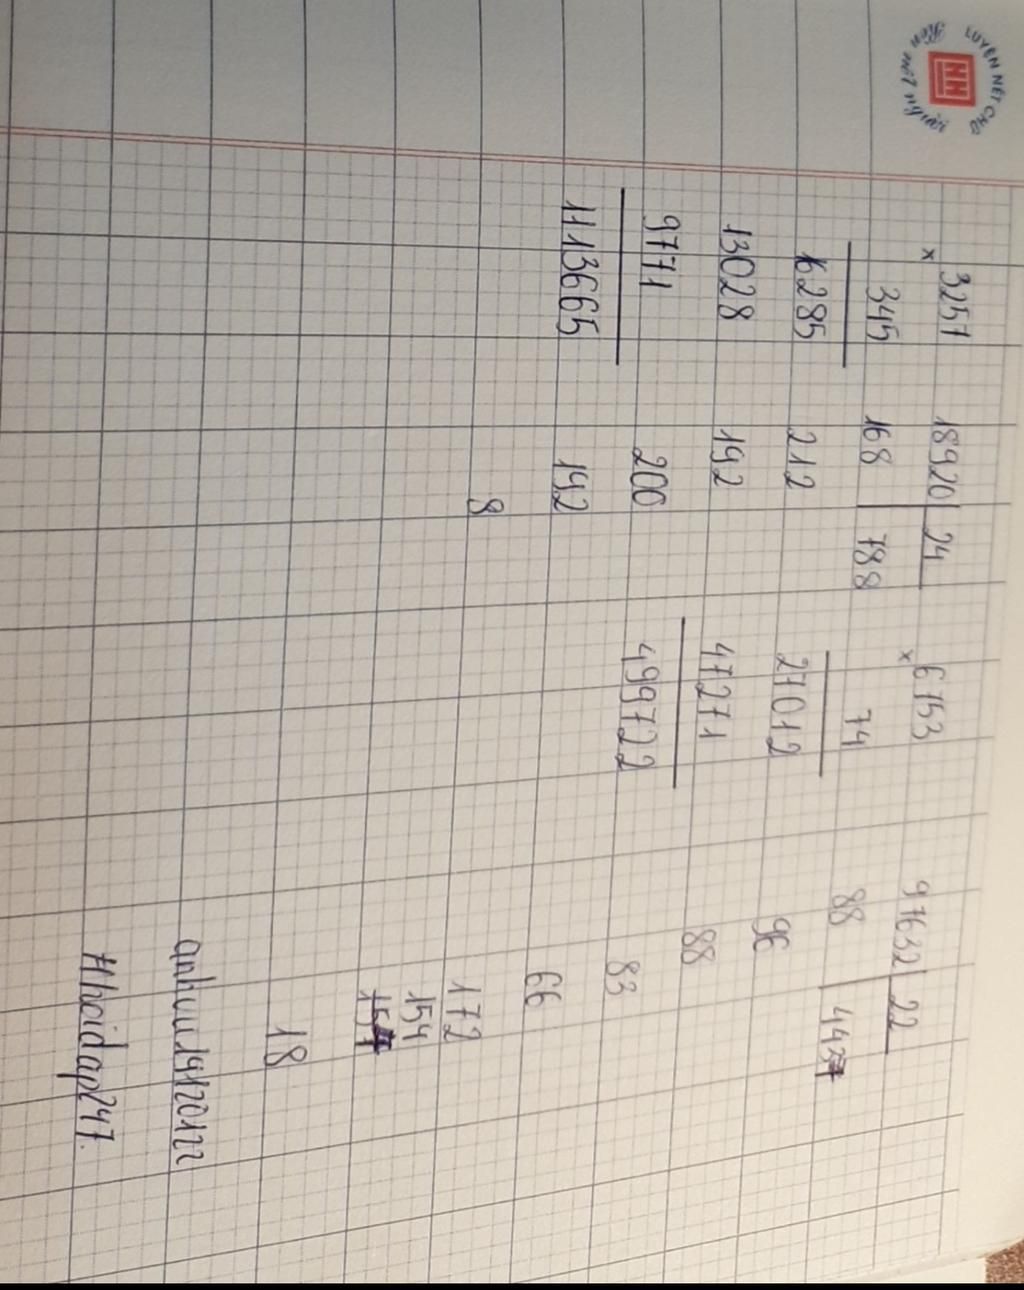 LUYỆN NÉT CHỮ
Rèn nết người
3257
x
345
16285
13028
9771
1113665
18920 24
168 788
212
192
200
192
8
6753
x
74
27012
47271
499722
97632 22
88 4437
96
88
83
66
172
154
154
18
#hoidap247.